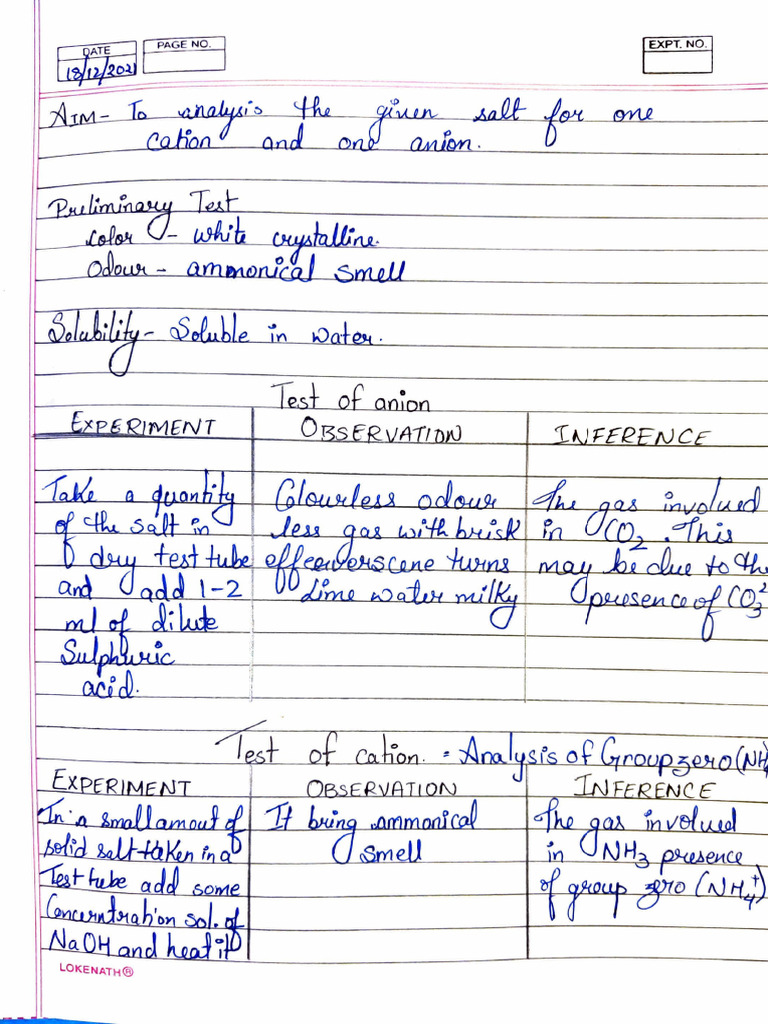 DATE
PAGE NO.
EXPT. NO.
18/12/2021
AIM- To analysis the given salt for one
cation and one anion.
Preliminary Test
color - white crystalline.
Odour - ammonical smell
Solubility- Soluble in water.
Test of anion
EXPERIMENT
OBSERVATION
INFERENCE
Take a quantity
of the salt in
dry test tube
and add 1-2
ml of dilute
Sulphuric
acid.
Colourless odour
less gas with brisk
effeeverscene turns
Lime water milky
The gas involued
in CO2. This
may be due to the
presence of CO3 2
Test of cation. = Analysis of Group zero (NH
EXPERIMENT
OBSERVATION
INFERENCE
In a small amout of
solid salt taken in a
Test tube add some
Concerntration sol. of
NaOH and heat it
It bring ammonical
smell
The gas involued
in NH3 presence
of group zero (NH4+)
LOKENATH®